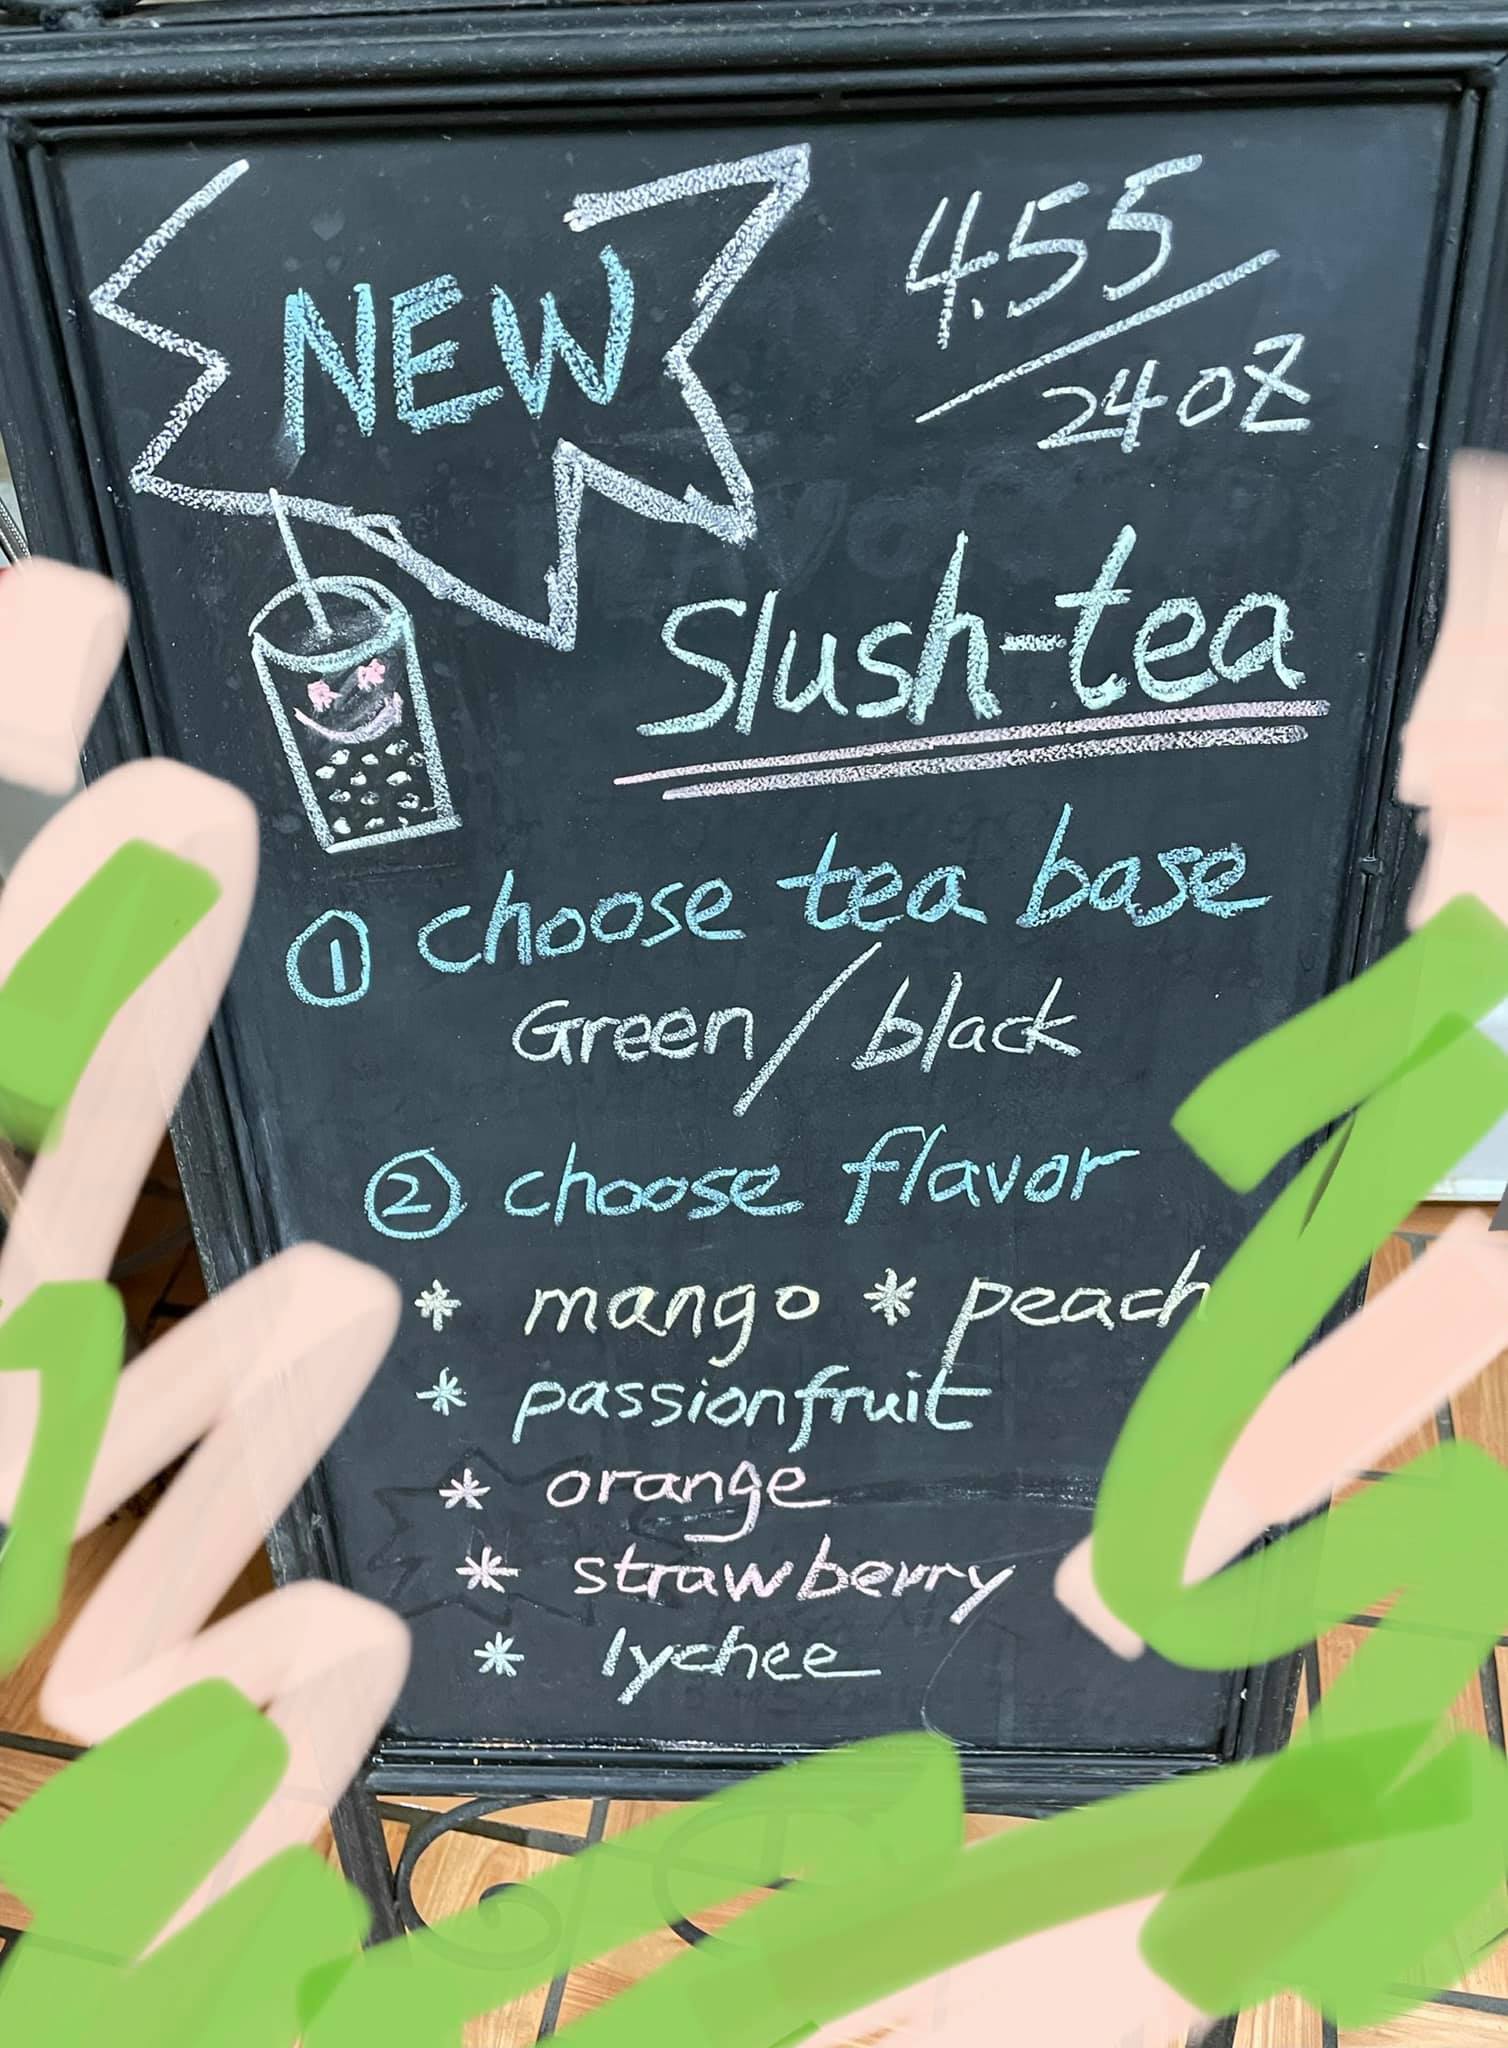 NEW
4.55/24oz
Slush-tea
① choose tea base
Green/black
② choose flavor
* mango * peach
* passionfruit
* orange
* strawberry
* lychee